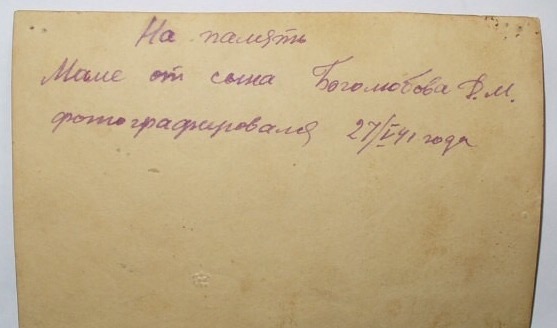 На память
Маме от сына Боголюбова В.М.
фотографировался 27/V 41 года